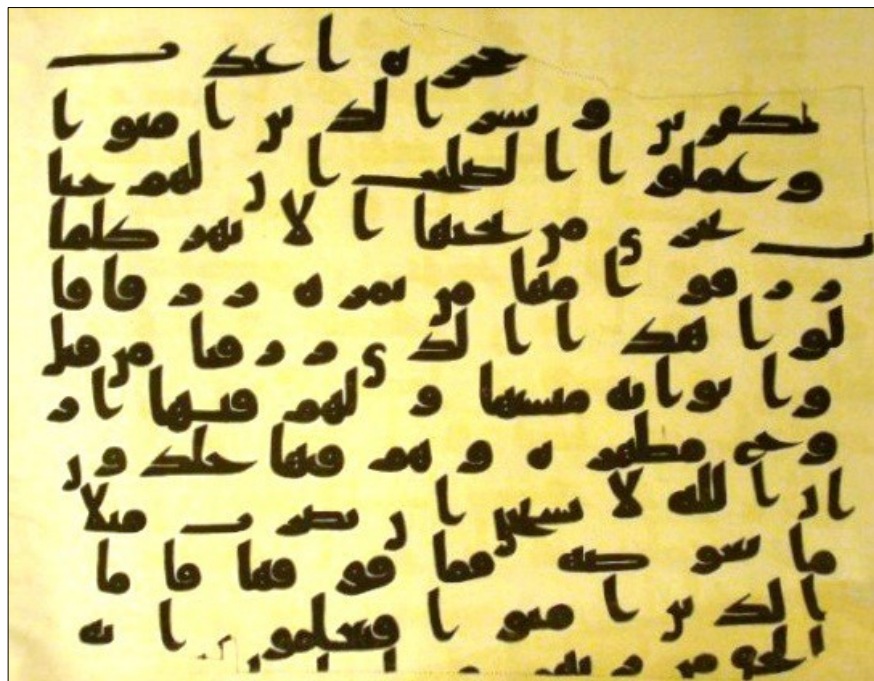 حجرة اعدت
لكفرين وبشر الذين امنوا
وعملوا الصلحت ان لهم جنا
ت تجري من تحتها الانهر كلما
رزقوا منها من ثمرة رزقا قا
لوا هذا الذي رزقنا من قبل
واتوا به متشبها ولهم فيها از
وج مطهرة وهم فيها خلدون
ان الله لا يستحي ان يضرب مثلا
ما بعوضة فما فوقها فاما
الذين امنوا فيعلمون انه
الحق من ربهم